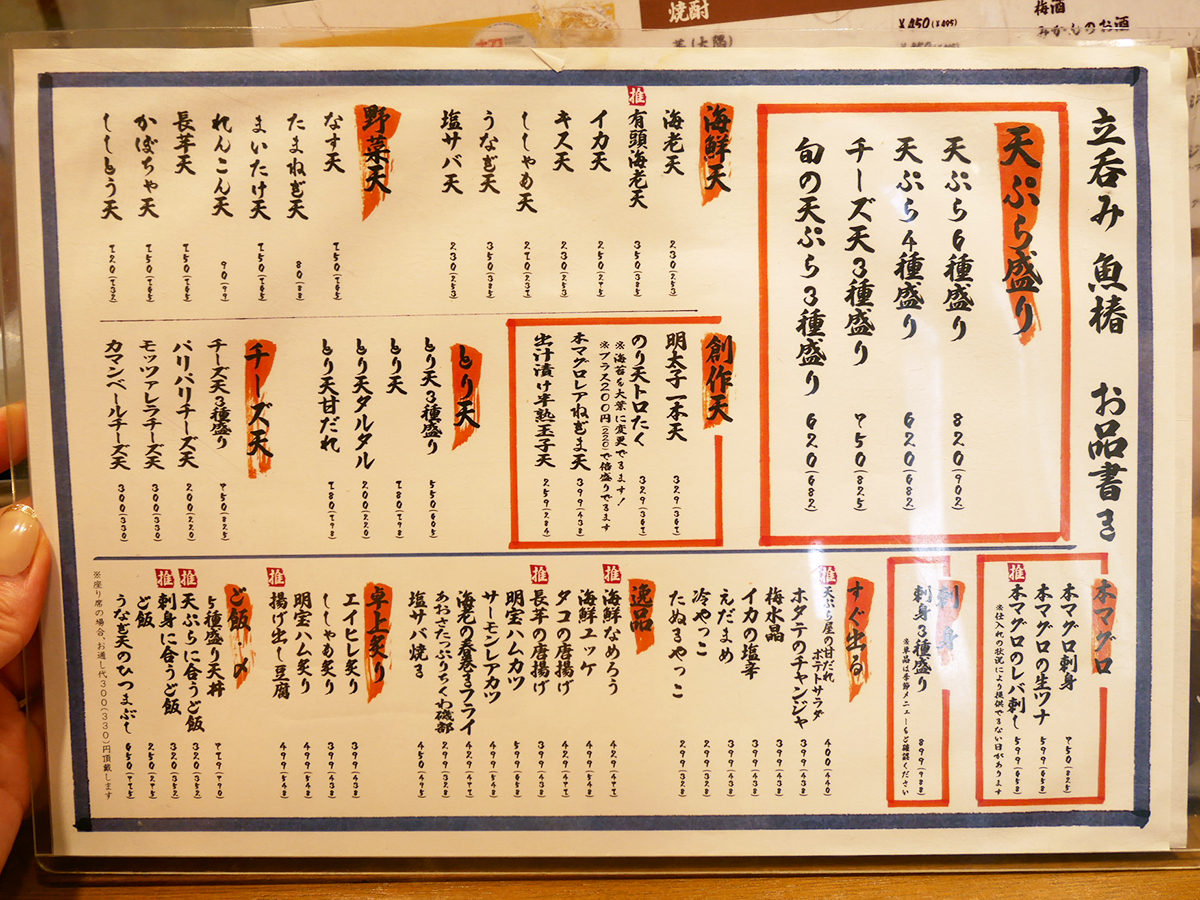 焼酎
梅酒
みかんのお酒
¥450(¥495)
立呑み 魚椿 お品書き
天ぷら盛り
天ぷら6種盛り 820(902)
天ぷら4種盛り 620(682)
チーズ天3種盛り 750(825)
旬の天ぷら3種盛り 620(682)
海鮮天
海老天 230(253)
推 有頭海老天 350(385)
イカ天 250(275)
キス天 230(253)
ししゃも天 210(231)
うなぎ天 350(385)
塩サバ天 230(253)
野菜天
なす天 150(165)
たまねぎ天 80(88)
まいたけ天 150(165)
れんこん天 90(99)
長芋天 150(165)
かぼちゃ天 150(165)
ししとう天 120(132)
創作天
明太子一本天 329(361)
のり天トロたく 329(361)
※海苔を大葉に変更できます!
※プラス200円(220)で倍盛りできます
本マグロレアねぎま天 399(438)
出汁漬け半熟玉子天 259(284)
とり天
とり天3種盛り 550(605)
とり天 180(198)
とり天タルタル 200(220)
とり天甘だれ 180(198)
チーズ天
チーズ天3種盛り 750(825)
パリパリチーズ天 200(220)
モッツァレラチーズ天 300(330)
カマンベールチーズ天 300(330)
本マグロ
本マグロ刺身 750(825)
本マグロの生ツナ 599(658)
推 本マグロのレバ刺し 599(658)
※仕入れの状況により提供できない日があります
刺身
刺身3種盛り 899(988)
※単品は季節メニューをご確認ください
すぐ出る
推 天ぷら屋の甘だれポテトサラダ 400(440)
ホタテのチャンジャ 399(438)
梅水晶 399(438)
イカの塩辛 399(438)
えだまめ 399(438)
冷やっこ 299(328)
たぬきやっこ 299(328)
逸品
推 海鮮なめろう 429(471)
海鮮ユッケ 429(471)
タコの唐揚げ 429(471)
推 長芋の唐揚げ 399(438)
明宝ハムカツ 599(658)
サーモンレアカツ 499(548)
海老の春巻きフライ 429(471)
あおさたっぷりちくわ磯部 299(328)
塩サバ焼き 450(495)
卓上炙り
エイヒレ炙り 399(438)
ししゃも炙り 399(438)
明宝ハム炙り 499(548)
推 揚げ出し豆腐 499(548)
ご飯・〆
5種盛り天丼 719(790)
推 天ぷらに合うどご飯 320(352)
推 刺身に合うどご飯 320(352)
ご飯 250(275)
うなぎ天のひつまぶし 650(715)
※座り席の場合、お通し代300(330)円頂戴します